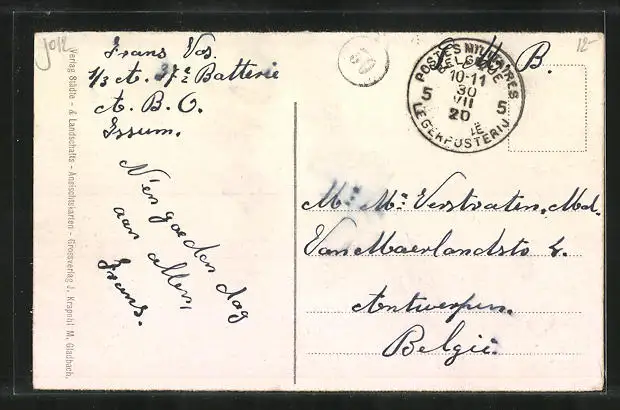 Frans Vos.
1/3 A. 37e Batterie
A. B. O.
Issum.
N'en goeden dag
aan allen,
Frans.
Verlag Städte - & Landschafts - Ansichtskarten - Grossverlag J. Krapohl M. Gladbach.
J012
50
S. M. B.
12-
POSTES MILITAIRES
BELGIQUE
10-11
30
VII
20
5 5
LEGERPOSTERIJ
Mr Mr Verstraten, Mad.
Van Maerlandstr 4.
Antwerpen.
België.